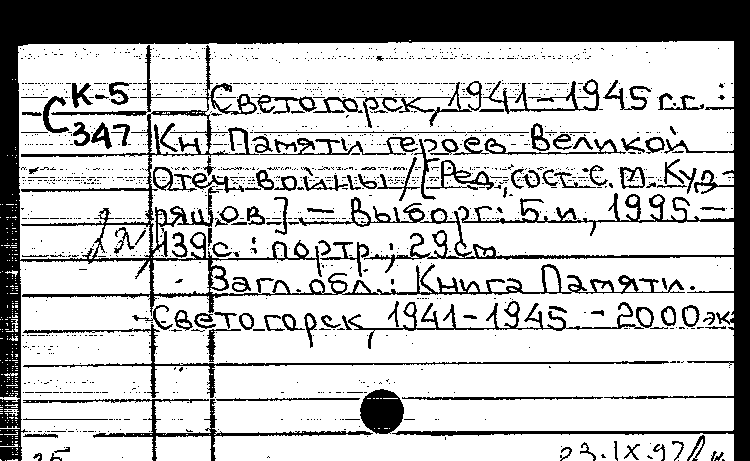 С К-5 / 347
Светогорск, 1941-1945 г.г. :
Кн. Памяти героев Великой
Отеч. войны / [Ред., сост. С. М. Куд-
ряшов]. — Выборг: Б.и., 1995. —
139 с. : портр. ; 29 см
Загл. обл.: Книга Памяти.
Светогорск, 1941-1945. - 2000 эк
23.IX.97